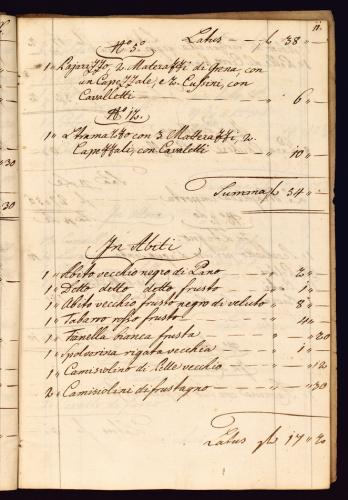 11.
N.º 5.º Latus — f 38 „ —
1 „ Pajarizzo, 2. Materazzi di Grena, con
un Capezzale, e 2. Cussini, con
Cavalletti — „ 6 „ —
N.º 12.
1 „ Stramazzo con 3 Materazzi, 2.
Capezzali, con Cavaletti „ 10 „ —
Summa f 54 „ —
In Abiti
1 „ Abito vecchio negro di Pano — „ 2 „ —
1 „ Detto detto detto frusto — „ 1 „ —
1 „ Abito vecchio frusto negro di veluto „ 8 „ —
1 „ Tabarro rosso frusto — „ 4 „ —
1 „ Fanella bianca frusta — „ — „ 20
1 „ Spolverina rigata vecchia — „ 1 „ —
1 „ Camisiolino di Pelle vecchio — „ — „ 12
2 „ Camisiolini di frustagno — „ — „ 30
Latus f 17 „ 2
30
30